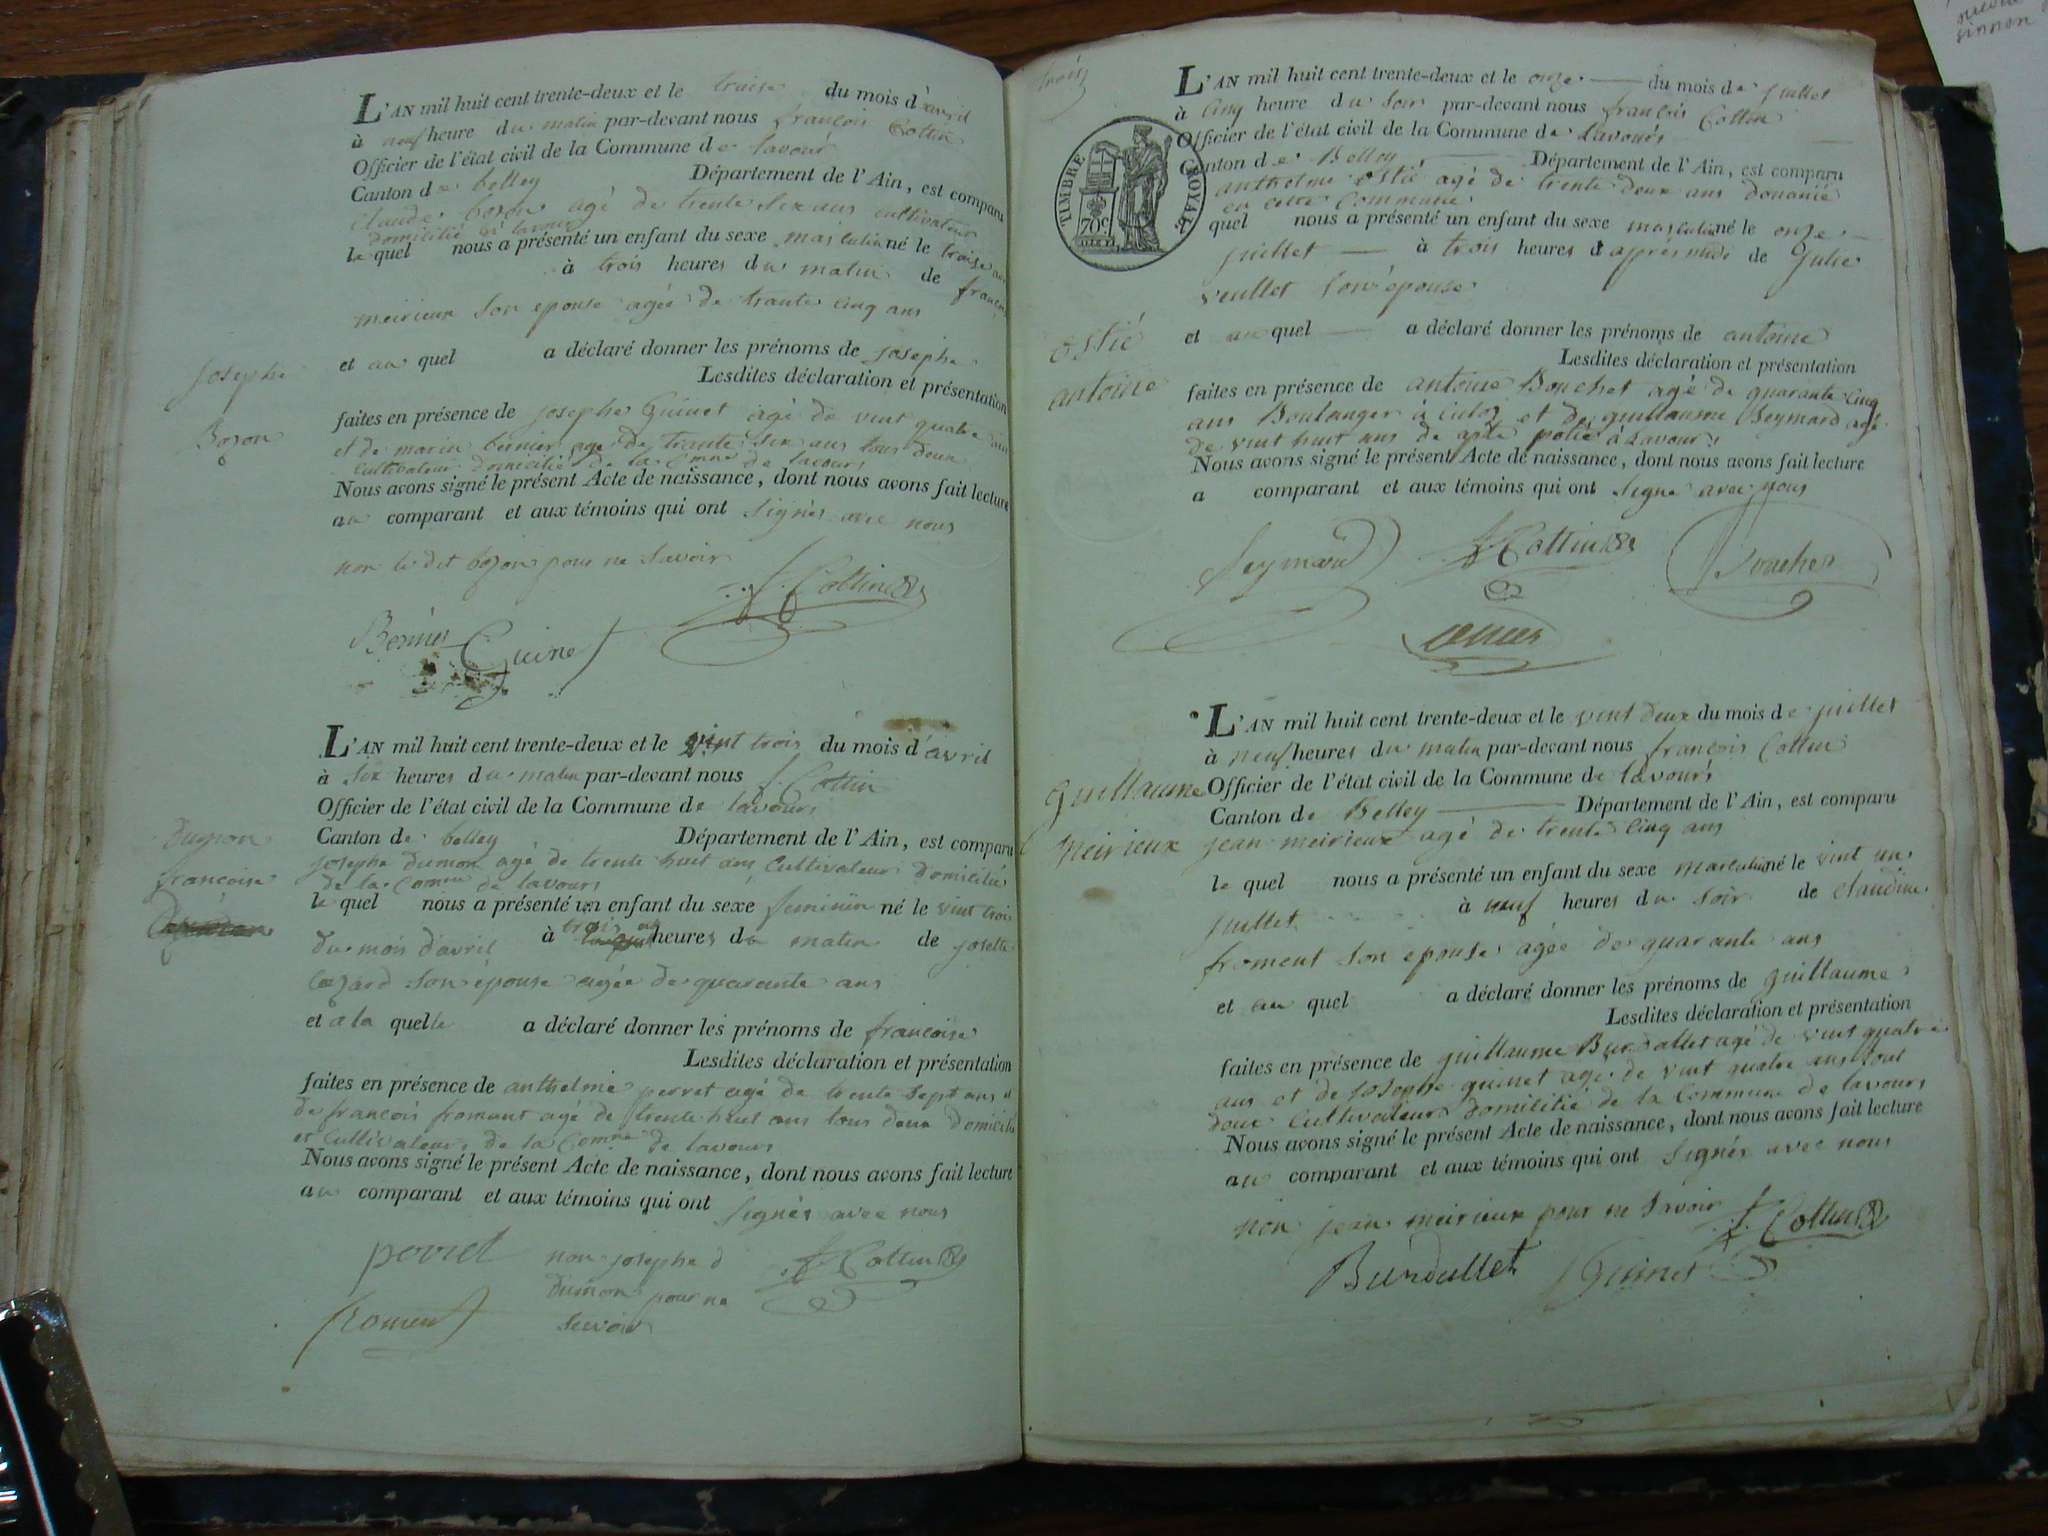 L'AN mil huit cent trente-deux et le traise du mois d'avril
à neuf heure du matin par-devant nous françois Cottin
Officier de l'état civil de la Commune de lavour
Canton de belley Département de l'Ain, est comparu
Claude bozon agé de trente six ans cultivateur
domicilié à lavour
le quel nous a présenté un enfant du sexe masculin né le traise
à trois heures du matin de
meirieux son epouse agée de trante cinq ans
et au quel a déclaré donner les prénoms de josephe
Lesdites déclaration et présentation
josephe
Bozon
faites en présence de josephe Guinet agé de vint quatre ans
et de marin bernier age de trante six ans tous deux
Cultivateur domicilié de la Comne de lavours
Nous avons signé le présent Acte de naissance, dont nous avons fait lecture
au comparant et aux témoins qui ont signés avec nous
non le dit bozon pour ne savoir
f. Cottin
Guinet
L'AN mil huit cent trente-deux et le vint trois du mois d'avril
à six heures du matin par-devant nous f. Cottin
Officier de l'état civil de la Commune de lavours
Canton de belley Département de l'Ain, est comparu
josephe dumon agé de trente huit ans Cultivateur domicilié
de la Comne de lavours
françoise
le quel nous a présenté un enfant du sexe feminin né le vint trois
du mois d'avril à trois heures du matin de josette
son épouse agée de quarante ans
et a la quelle a déclaré donner les prénoms de francoise
Lesdites déclaration et présentation
faites en présence de anthelme perret agé de trente sept ans et
de francois fromant agé de trente huit ans tous deux domicilié
et Cultivateur de la Comne de lavours
Nous avons signé le présent Acte de naissance, dont nous avons fait lecture
au comparant et aux témoins qui ont signés avec nous
perret non josephe
dumon pour ne
savoir
f. Cottin
froment
trois
TIMBRE ROYAL
70c
L'AN mil huit cent trente-deux et le onze du mois de juillet
à cinq heure du soir par-devant nous françois Cottin
Officier de l'état civil de la Commune de Lavours
Canton de Belley Département de l'Ain, est comparu
anthelme ostié agé de trente deux ans douanié
en cette Commune
quel nous a présenté un enfant du sexe masculin né le onze
juillet à trois heures d'aprés midi de Julie
veullet son épouse
et au quel a déclaré donner les prénoms de antoine
Lesdites déclaration et présentation
ostié
antoine
faites en présence de antoine Bouchet agé de quarante cinq
ans Boulanger à culoz et de guillaume Seymard agé
de vint huit ans à Lavours
Nous avons signé le présent Acte de naissance, dont nous avons fait lecture
a comparant et aux témoins qui ont signé avec nous
Seymard f. Cottin Bouchet
L'AN mil huit cent trente-deux et le vint deux du mois de juillet
à neuf heures du matin par-devant nous françois Cottin
Officier de l'état civil de la Commune de lavours
Canton de Belley Département de l'Ain, est comparu
guillaume
meirieux
jean meirieux agé de trente cinq ans
le quel nous a présenté un enfant du sexe masculin né le vint un
juillet à neuf heures du soir de claudine
froment son epouse agée de quarante ans
et au quel a déclaré donner les prénoms de guillaume
Lesdites déclaration et présentation
faites en présence de guillaume Burdallet agé de vint quatre
ans et de Josephe guinet agé de vint quatre ans tout
deux Cultivateurs domicilié de la Commune de lavours
Nous avons signé le présent Acte de naissance, dont nous avons fait lecture
au comparant et aux témoins qui ont signés avec nous
non jean meirieux pour ne savoir f. Cottin
Burdallet Guinet